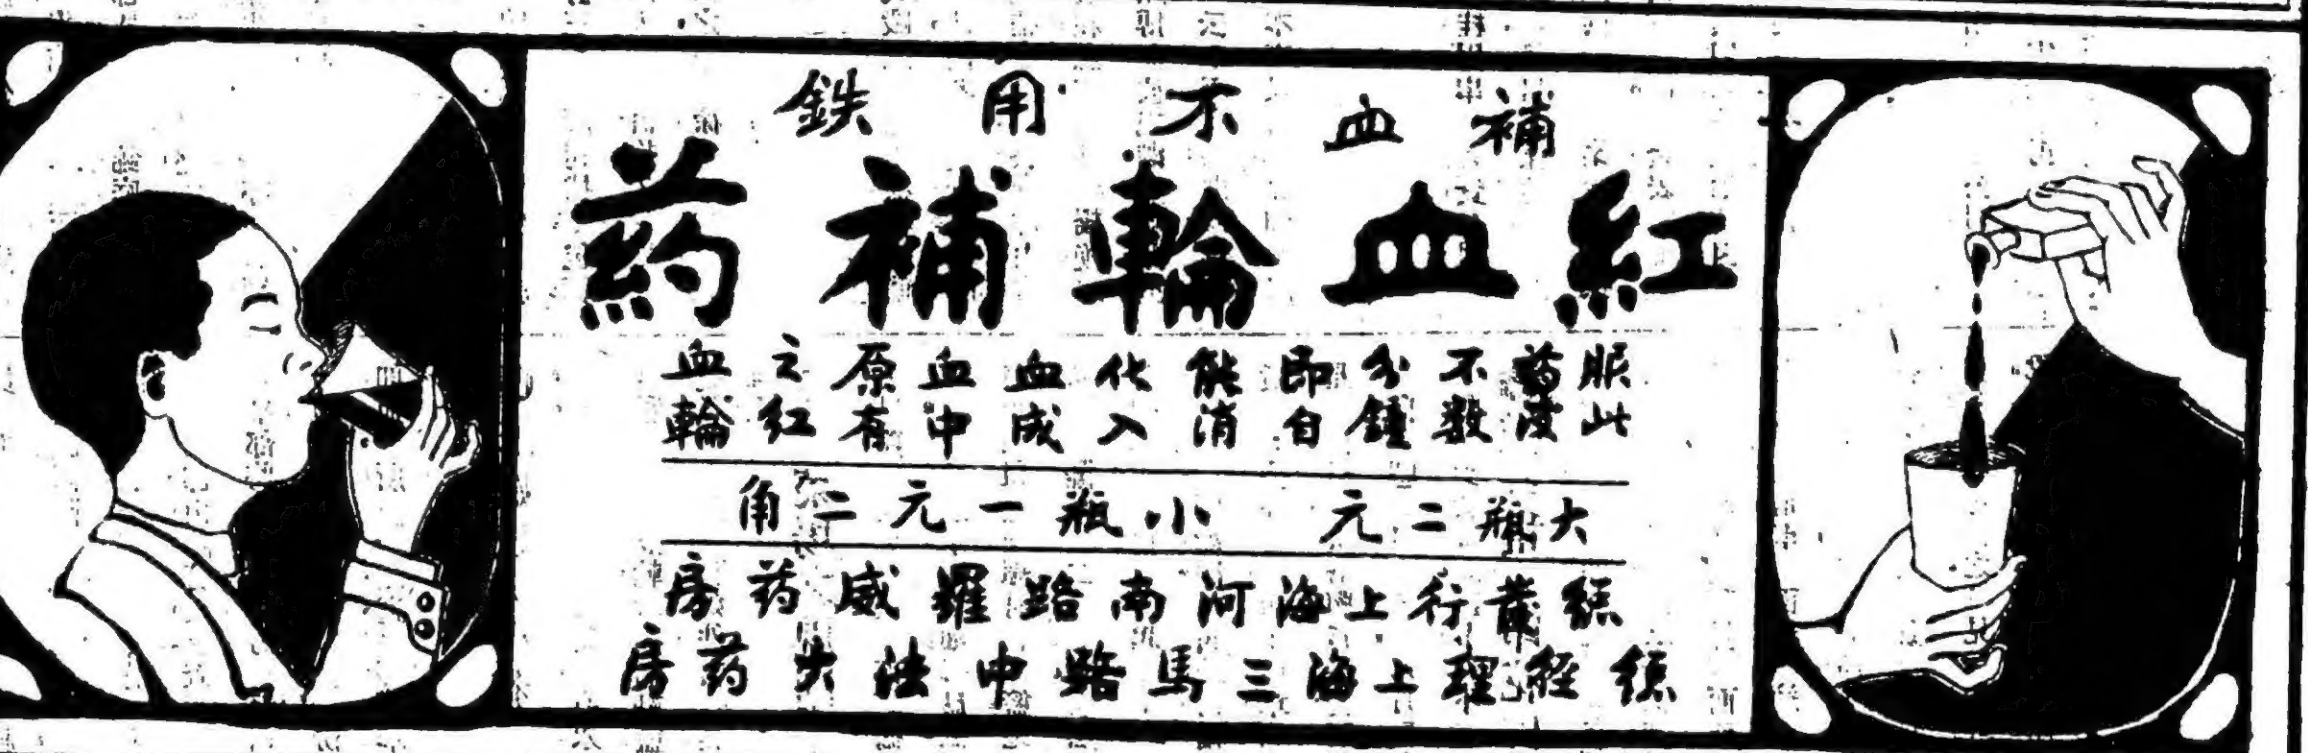 補血不用鉄
紅血輪補葯
服此葯後不數分鐘即自能消化入血成血中原有之紅血輪
大瓶二元 小瓶一元二角
總發行上海河南路羅威葯房
總經理上海三馬路中法大葯房